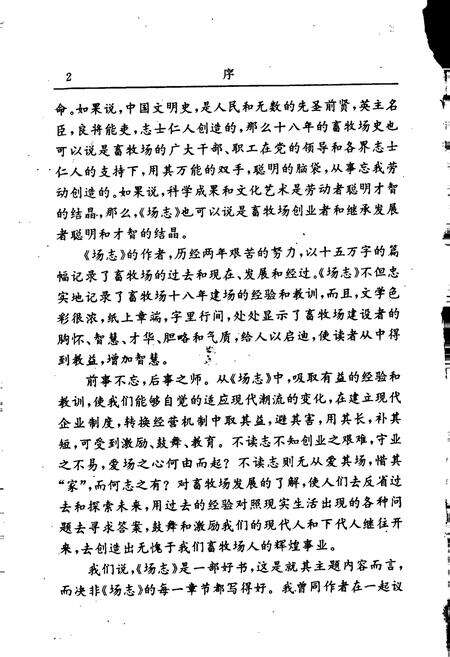 2 序
命。如果说，中国文明史，是人民和无数的先圣前贤，英主名
臣，良将能吏，志士仁人创造的，那么十八年的畜牧场史也
可以说是畜牧场的广大干部、职工在党的领导和各界志士
仁人的支持下，用其万能的双手，聪明的脑袋，从事忘我劳
动创造的。如果说，科学成果和文化艺术是劳动者聪明才智
的结晶，那么，《场志》也可以说是畜牧场创业者和继承发展
者聪明和才智的结晶。
《场志》的作者，历经两年艰苦的努力，以十五万字的篇
幅记录了畜牧场的过去和现在、发展和经过。《场志》不但忠
实地记录了畜牧场十八年建场的经验和教训，而且，文学色
彩很浓，纸上章端，字里行间，处处显示了畜牧场建设者的
胸怀、智慧、才华、胆略和气质，给人以启迪，使读者从中得
到教益，增加智慧。
前事不忘，后事之师。从《场志》中，吸取有益的经验和
教训，使我们能够自觉的适应现代潮流的变化，在建立现代
企业制度，转换经营机制中取其益，避其害，用其长，补其
短，可受到激励、鼓舞、教育。不读志不知创业之艰难，守业
之不易，爱场之心何由而起？不读志则无从爱其场，惜其
“家”，而何志之有？对畜牧场发展的了解，使人们去反省过
去和探索未来，用过去的经验对照现实生活出现的各种问
题去寻求答案，鼓舞和激励我们的现代人和下代人继往开
来，去创造出无愧于我们畜牧场人的辉煌事业。
我们说，《场志》是一部好书，这是就其主题内容而言，
而决非《场志》的每一章节都写得好。我曾同作者在一起议